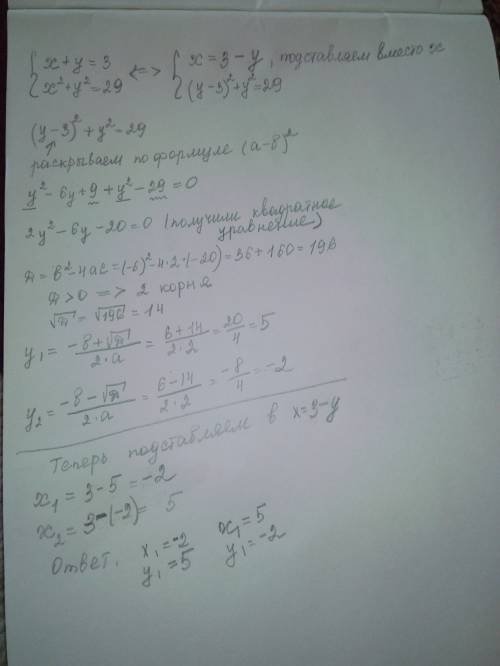 { x + y = 3 <=> { x = 3 - y, подставляем вместо x
{ x² + y² = 29 { (y-3)² + y² = 29
(y-3)² + y² = 29
раскрываем по формуле (а-в)²
y² - 6y + 9 + y² - 29 = 0
2y² - 6y - 20 = 0 (получили квадратное
уравнение)
Д = в² - 4ac = (-6)² - 4·2·(-20) = 36 + 160 = 196
Д > 0 => 2 корня
√Д = √196 = 14
y₁ = (-в + √Д)/(2·a) = (6+14)/(2·2) = 20/4 = 5
y₂ = (-в - √Д)/(2·a) = (6-14)/(2·2) = -8/4 = -2
Теперь подставляем в x = 3-y
x₁ = 3 - 5 = -2
x₂ = 3 - (-2) = 5
Ответ. x₁ = -2 x₁ = 5
y₁ = 5 y₁ = -2